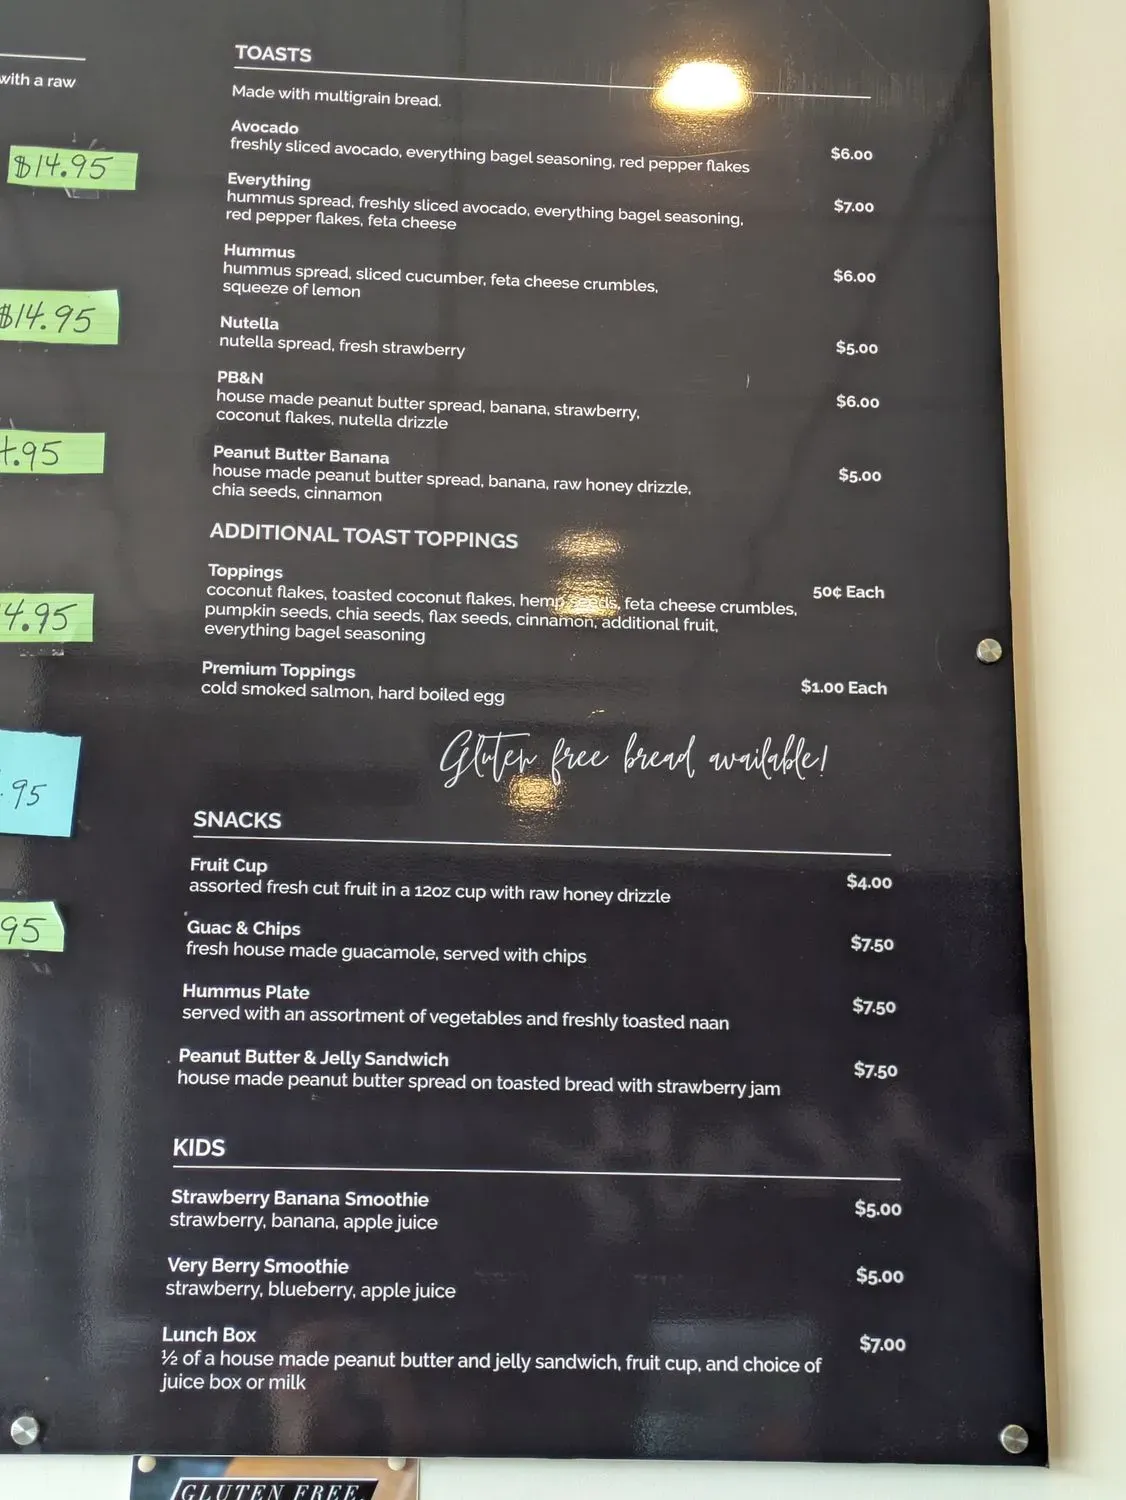 with a raw
$14.95
$14.95
4.95
4.95
.95
95
TOASTS
Made with multigrain bread.
Avocado
freshly sliced avocado, everything bagel seasoning, red pepper flakes
$6.00
Everything
hummus spread, freshly sliced avocado, everything bagel seasoning,
red pepper flakes, feta cheese
$7.00
Hummus
hummus spread, sliced cucumber, feta cheese crumbles,
squeeze of lemon
$6.00
Nutella
nutella spread, fresh strawberry
$5.00
PB&N
house made peanut butter spread, banana, strawberry,
coconut flakes, nutella drizzle
$6.00
Peanut Butter Banana
house made peanut butter spread, banana, raw honey drizzle,
chia seeds, cinnamon
$5.00
ADDITIONAL TOAST TOPPINGS
Toppings
coconut flakes, toasted coconut flakes, hemp seeds, feta cheese crumbles,
pumpkin seeds, chia seeds, flax seeds, cinnamon, additional fruit,
everything bagel seasoning
50¢ Each
Premium Toppings
cold smoked salmon, hard boiled egg
$1.00 Each
Gluten free bread available!
SNACKS
Fruit Cup
assorted fresh cut fruit in a 12oz cup with raw honey drizzle
$4.00
Guac & Chips
fresh house made guacamole, served with chips
$7.50
Hummus Plate
served with an assortment of vegetables and freshly toasted naan
$7.50
Peanut Butter & Jelly Sandwich
house made peanut butter spread on toasted bread with strawberry jam
$7.50
KIDS
Strawberry Banana Smoothie
strawberry, banana, apple juice
$5.00
Very Berry Smoothie
strawberry, blueberry, apple juice
$5.00
Lunch Box
½ of a house made peanut butter and jelly sandwich, fruit cup, and choice of
juice box or milk
$7.00
GLUTEN FREE,